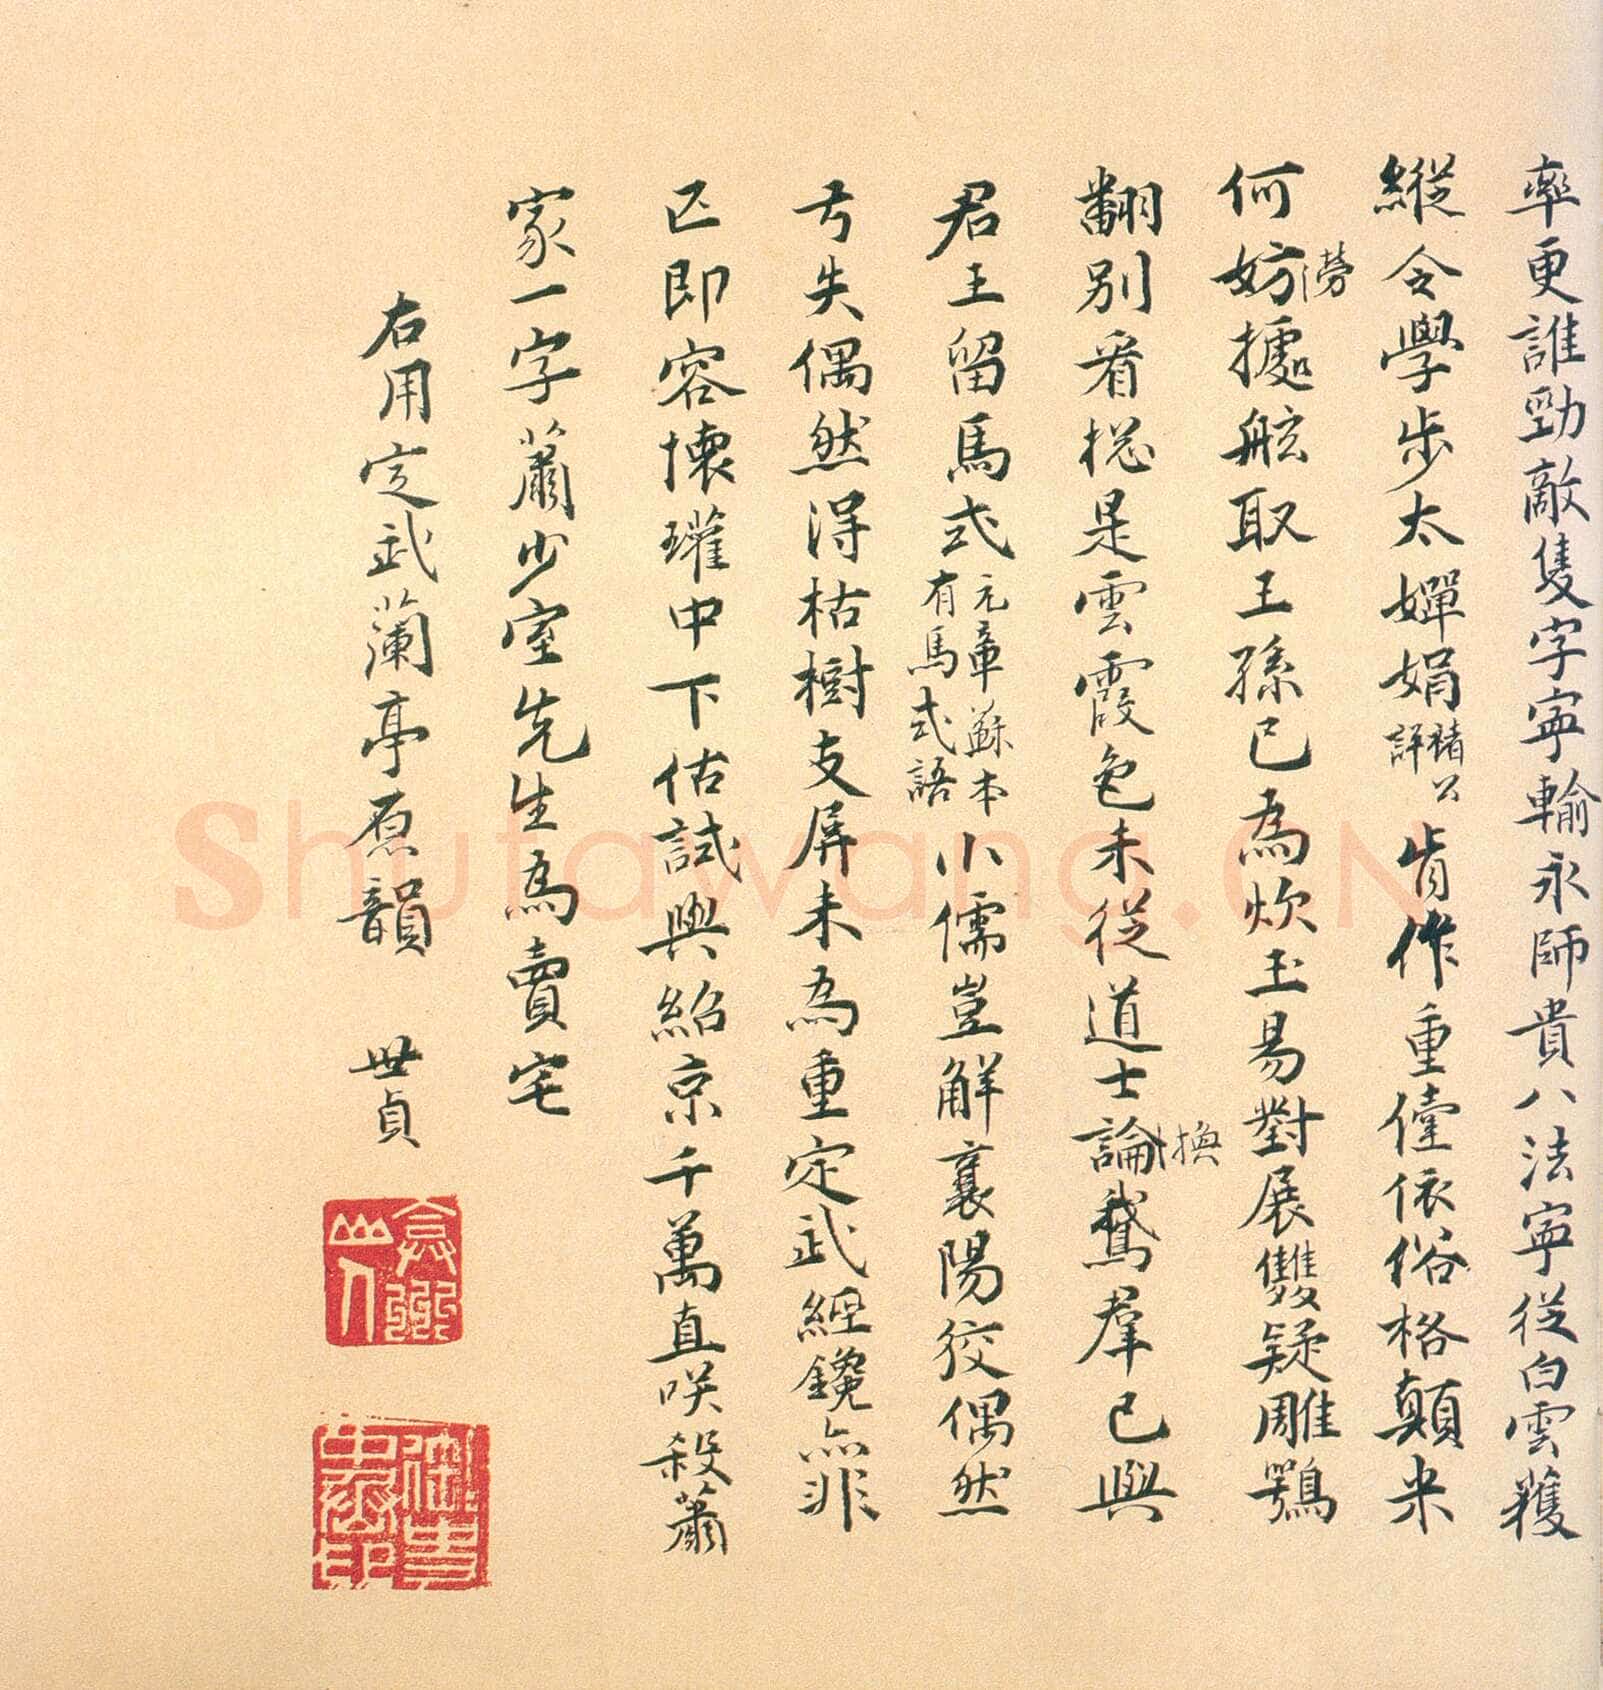 率更誰勁敵隻字寧輸永師貴八法寧從白雲獲
縱令學步太嬋娟褚公評肯作重儓依俗格顛米
何妨勞據舷取王孫已為炊玉易對展雙疑雕鶚
翻別看捴是雲霞色未從道士論換鵞羣已與
君王留馬式元章蘇本有馬式語小儒豈解襄陽狡偶然
亏失偶然得枯樹支屏未為重定武經鑱亦非
匹即容懷瓘中下估試與紹京千萬直咲殺蕭
家一字蕭少室先生為賣宅
右用定武蘭亭原韻 世貞
Shutawang.CN